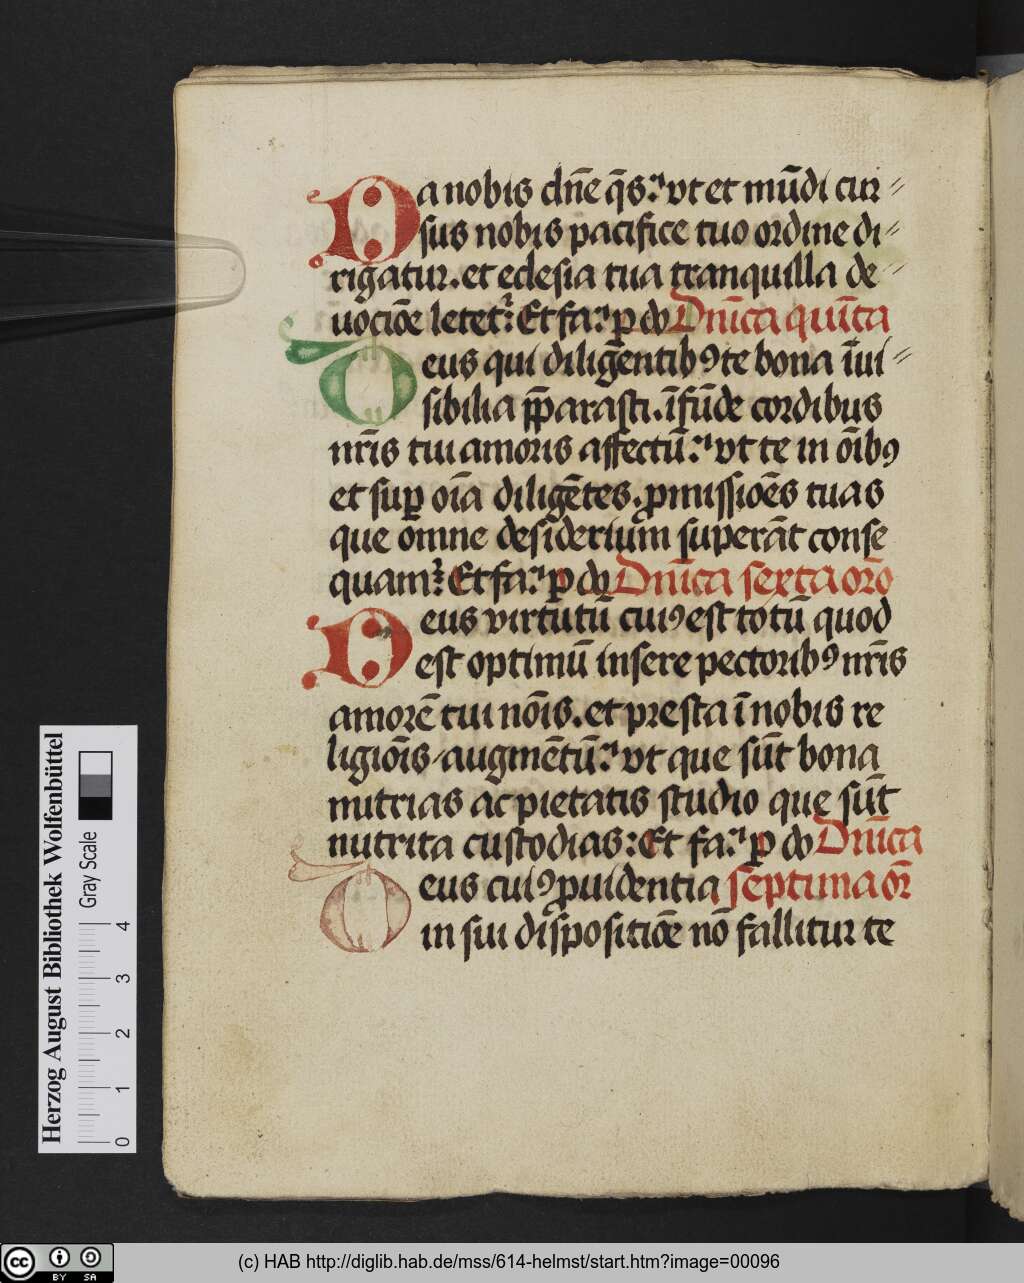 Da nobis dn̄e q̄s: vt et mūdi cur⸗
sus nobis pacifice tuo ordine di⸗
rigatur. et eclesia tua tranquilla de⸗
uociōe letet᷑: Et fa: p do Dn̄ica quīta
Deus qui diligentibꝰ te bona īui⸗
sibilia p̄parasti. īfūde cordibus
nr̄is tui amoris affectū: vt te in oībꝰ
et suꝑ oīa diligētes. ꝓmissiōes tuas
que omne desiderium superāt conse
quam᷑: Et fa: p do Dn̄ica sexta orō
Deus virtutū cuiꝰ est totū quod
est optimū insere pectoribꝰ nr̄is
amorē tui noīs. et presta ī nobis re
ligiōis augmētū: vt que sūt bona
nutrias ac pietatis studio que sūt
nutrita custodias: Et fa: p do Dn̄ica
Deus cuiꝰ ꝓuidentia septima or̄
in sui dispositiōe nō fallitur te
Herzog August Bibliothek Wolfenbüttel
Gray Scale
0 1 2 3 4
cc BY SA
(c) HAB http://diglib.hab.de/mss/614-helmst/start.htm?image=00096